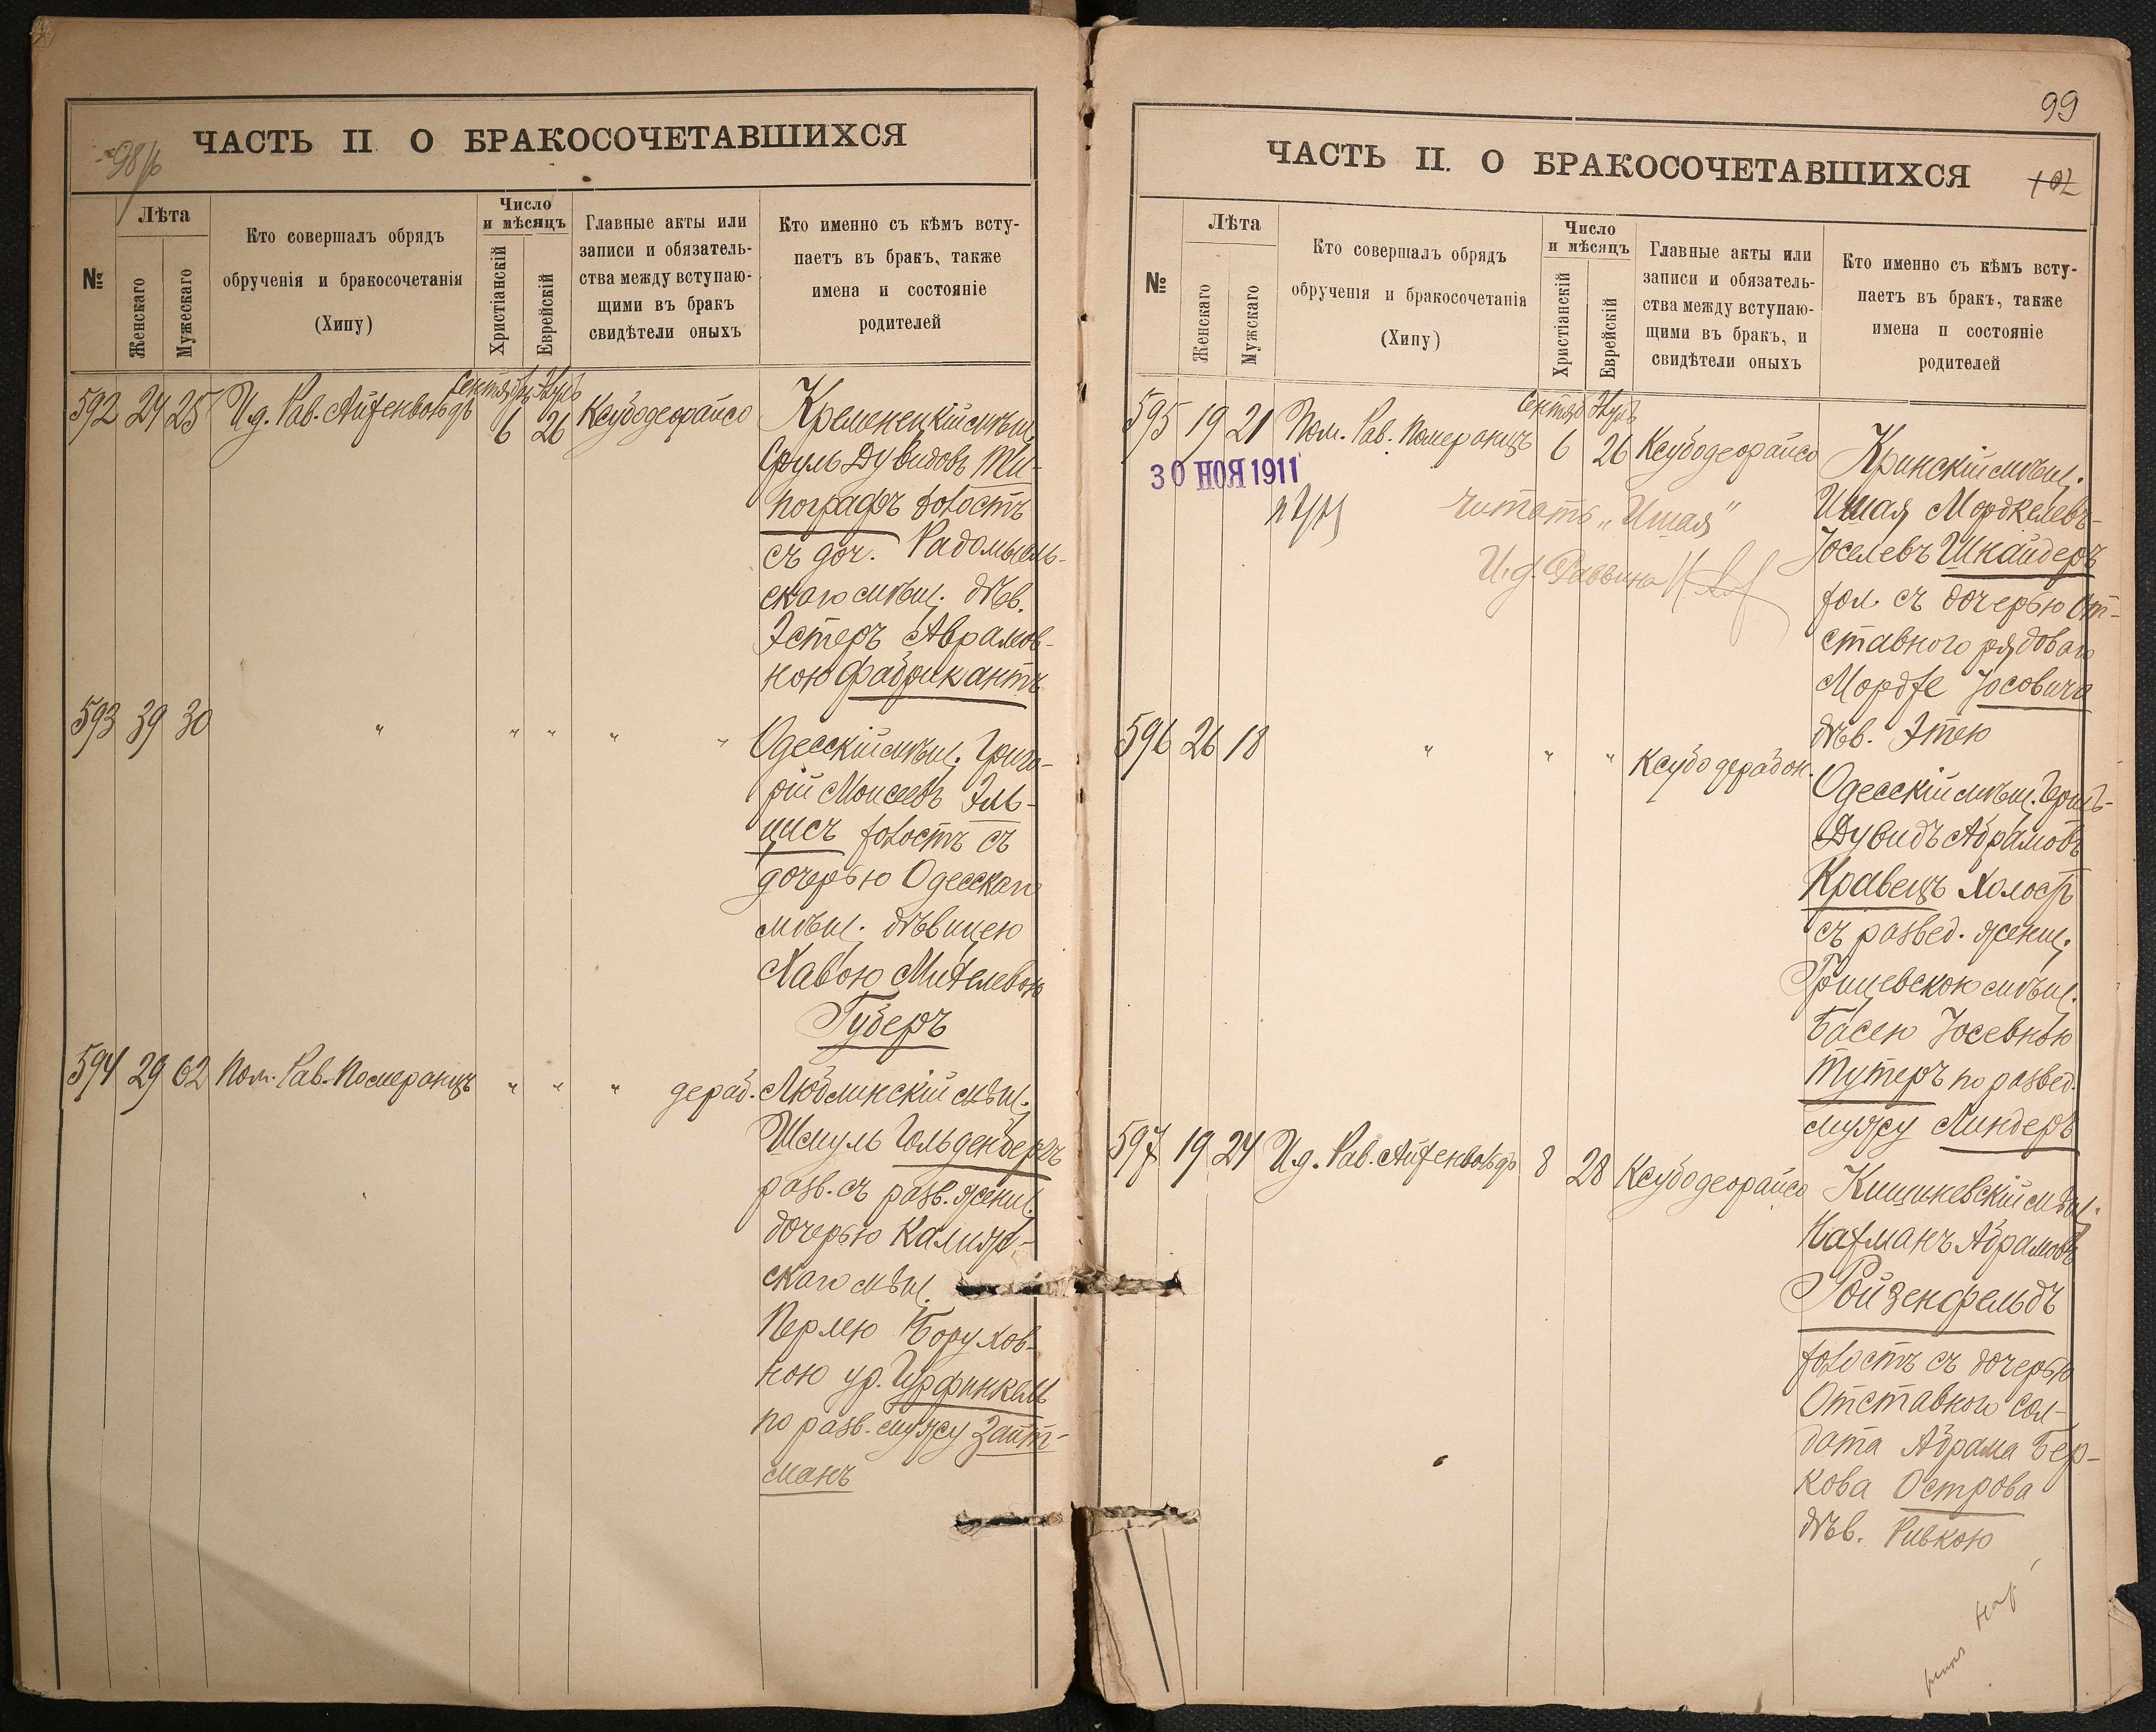 ЧАСТЬ II О БРАКОСОЧЕТАВШИХСЯ
№
Лѣта
Женскаго
Мужескаго
Кто совершалъ обрядъ
обрученія и бракосочетанія
(Хипу)
Число
и мѣсяцъ
Христіанскій
Еврейскій
Главные акты или
записи и обязатель-
ства между вступаю-
щими въ бракъ
свидѣтели оныхъ
Кто именно съ кѣмъ всту-
паетъ въ бракъ, также
имена и состояніе
родителей
592 24 25 И.д. Рав. Айзенвольдъ 6 26 Ксубодеорайсо
Кременецкій мѣщ.
Сруль Дувидовъ Ти-
пографъ холостъ
съ доч. Радомысль-
скаго мѣщ. дѣв.
Эстеръ Аврамов-
ною Фабрикантъ
593 39 30 " " " " "
Одесскій мѣщ. Григо-
рій Моисеевъ Эль-
цисъ холостъ съ
дочерью Одесскаго
мѣщ. дѣвицею
Хавою Михелевою
Губеръ
594 29 62 Пом. Рав. Померанцъ " " " дераб.
Люблинскій мѣщ.
Шмуль Гольденбергъ
разв. съ разв. женщ.
дочерью Калюж-
скаго мѣщ.
Перлею Борухов-
ною ур. Гурфинкель
по разв. мужу Зайт-
манъ
99
ЧАСТЬ II. О БРАКОСОЧЕТАВШИХСЯ
102
№
Лѣта
Женскаго
Мужскаго
Кто совершалъ обрядъ
обрученія и бракосочетанія
(Хипу)
Число
и мѣсяцъ
Христіанскій
Еврейскій
Главные акты или
записи и обязатель-
ства между вступаю-
щими въ бракъ, и
свидѣтели оныхъ
Кто именно съ кѣмъ всту-
паетъ въ бракъ, также
имена и состояніе
родителей
595 19 21 Пом. Рав. Померанцъ 6 26 Ксубодеорайсо
30 НОЯ 1911
читать „Ишая"
И.д. Раввина
Кринскій мѣщ.
Ишая Мордкелевъ-
Іоселевъ Шнайдеръ
хол. съ дочерью От-
ставного рядового
Мордхе Іосовича
дѣв. Этею
596 26 18 " " " Ксубо дерабон.
Одесскій мѣщ. Гершъ-
Дувидъ Абрамовъ
Кравецъ Холостъ
съ развед. женщ.
Грицевскою мѣщ.
Басею Іосевною
Тутеръ по развед.
мужу Линдеръ
597 19 24 И.д. Рав. Айзенвольдъ 8 28 Ксубодеорайсо
Кишиневскій мѣщ.
Нахманъ Абрамовъ
Ройзенфельдъ
холостъ съ дочерью
Отставного сол-
дата Абрама Бер-
кова Острова
дѣв. Ривкою